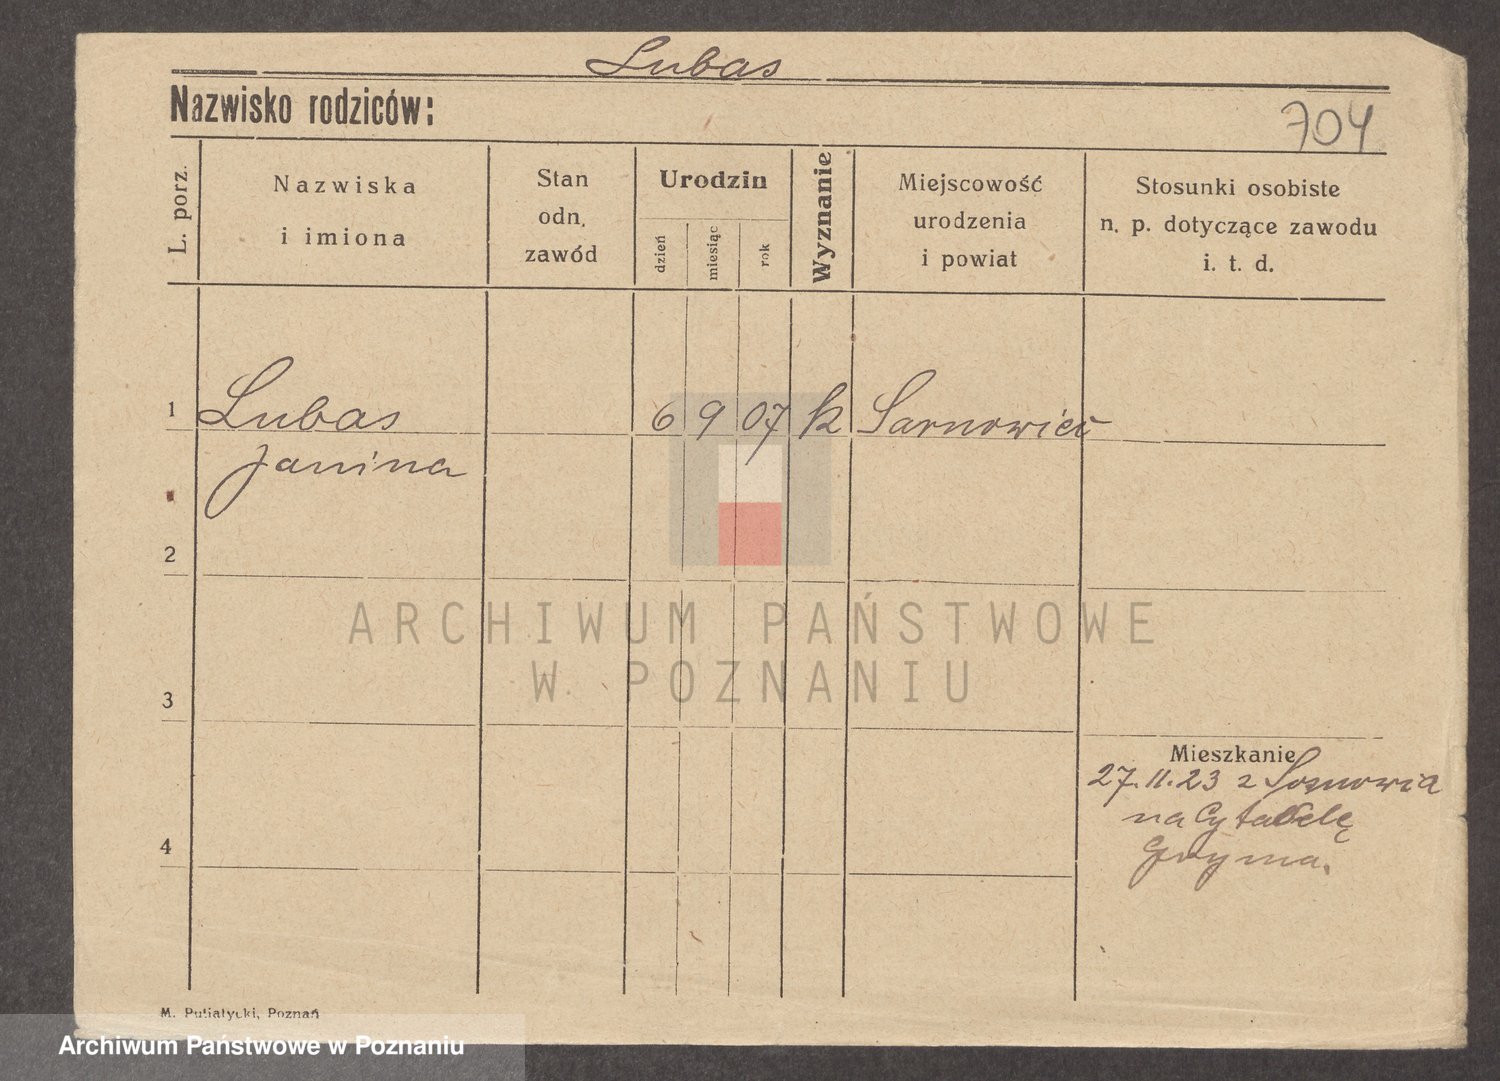 Lubas
Nazwisko rodziców:
704
L. porz.
Nazwiska
i imiona
Stan
odn.
zawód
Urodzin
dzień
miesiąc
rok
Wyznanie
Miejscowość
urodzenia
i powiat
Stosunki osobiste
n. p. dotyczące zawodu
i. t. d.
1 Lubas 6 9 07 k
Janina
2
3
4
Mieszkanie
27.11.23 z
na Cytadelę
M. Putiatycki, Poznań
ARCHIWUM PAŃSTWOWE
W POZNANIU
Archiwum Państwowe w Poznaniu